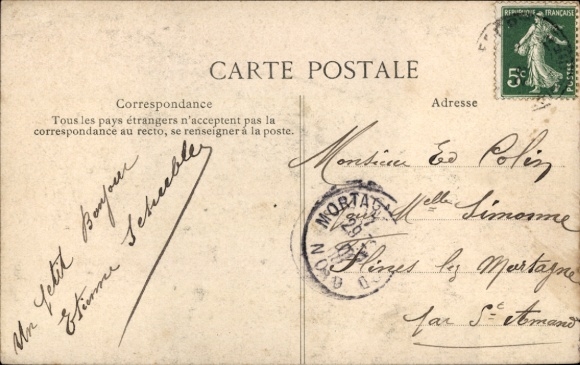 CARTE POSTALE
Correspondance
Tous les pays étrangers n'acceptent pas la
correspondance au recto, se renseigner à la poste.
Adresse
RÉPUBLIQUE FRANÇAISE
5c
POSTES
Un petit Bonjour
Etienne
Monsieur Ed Colin
Melle Simonne
Flines lez Mortagne
par St Amand
MORTAG
NORD